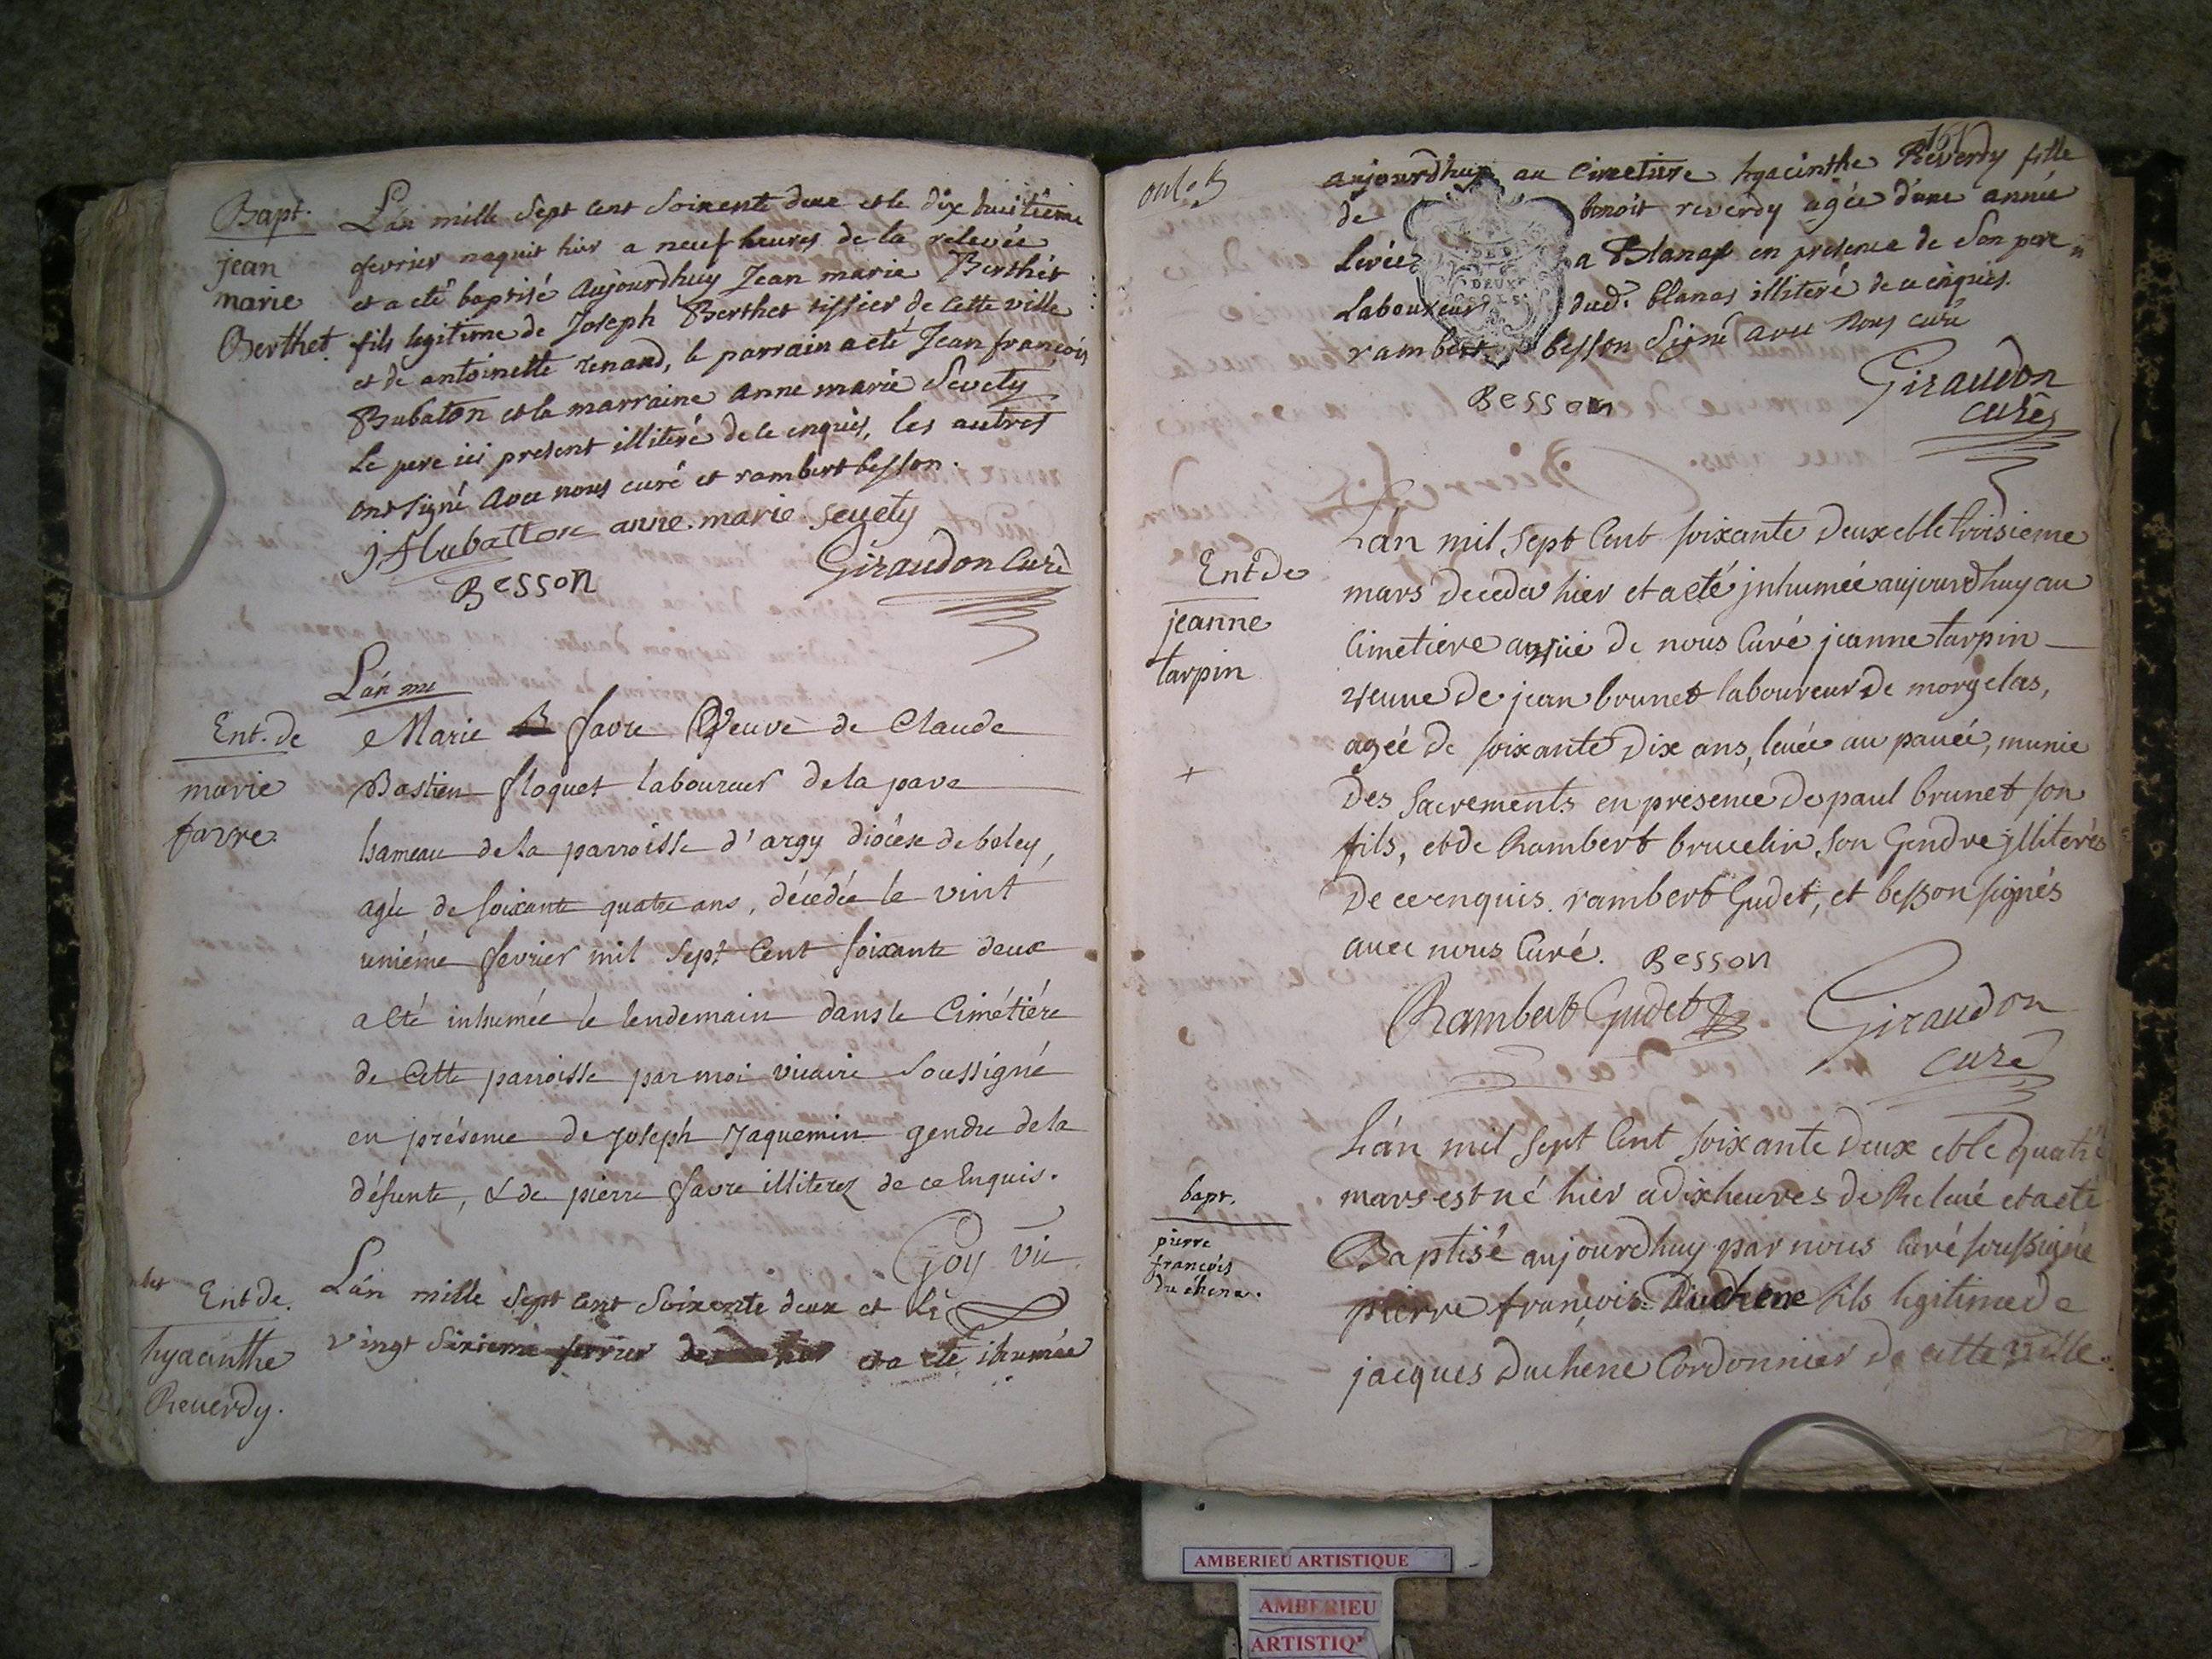 Bapt.
jean
marie
Berthet.
L'an mille Sept Cent Soixente deux et le dix huitième
fevrier naquit hier a neuf heures de la relevée
et a eté baptisé Aujourdhuy Jean marie Berthet
fils legitime de Joseph Berthet tissier de Cette ville
et de antoinette renand, le parrain a eté Jean françois
Bubaton et la marraine anne marie Sevety
Le pere ici present illiteré de ce enquis, les autres
ont signé Avec nous curé et rambert besson.
anne. marie. sevety
Besson
Giraudon Curé
L'an mi
Ent. de
marie
favre.
Marie favre Veuve de Claude
Bastien floquet laboureur de la pave
hameau de la parroisse d'argy diocèse de beley,
agée de soixante quatre ans, décédée le vint
unième fevrier mil sept cent soixante deux
a eté inhumée le lendemain dans le Cimétiére
de Cette parroisse par moi vicaire Soussigné
en présence de Joseph Jaquemin gendre de la
défunte, & de pierre favre illiterez de ce enquis.
Goy vic
Ent de.
hyacinthe
Reuerdy.
L'an mille Sept Cent Soixente deux et le
vingt Sixieme fevrier et a eté ihumée
161
aujourdhuy au Cimetiere hyacinthe Reverdy fille
de benoit reverdy agée d'une année
Levée a Blanas en presence de Son pere
Laboureur dud. blanas illiteré de ce enquis.
rambert besson Signé avec Nous curé
DEUX
SOLS
Besson
Giraudon
curé
Ent de
jeanne
tarpin
L'an mil Sept Cent soixante Deux et le troisieme
mars decedée hier et a eté jnhumée aujourdhuy au
Cimetiere de nous Curé jeanne tarpin
veuve de jean brunet laboureur de morgelas,
agée de soixante Dix ans, levée au pavée, munie
Des Sacrements en presence de paul brunet son
fils, et de Rambert brucelin son Gendre jlliterés
De ce enquis. rambert Gudet, et besson signés
avec nous Curé. Besson
Rambert Gudet
Giraudon
curé
bapt.
pierre
françois
du chene.
L'an mil Sept Cent soixante Deux et le quatre
mars est né hier a dix heures de Relevé et a eté
Baptisé aujourdhuy par nous Curé soussigné
pierre françois Duchene fils legitime de
jacques Duchene Cordonnier de cette ville.
AMBERIEU ARTISTIQUE
AMBERIEU
ARTISTIQ